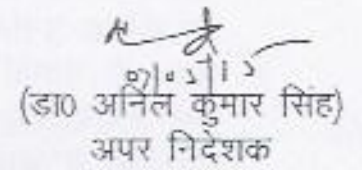 (डा० अनिल कुमार सिंह)
अपर निदेशक